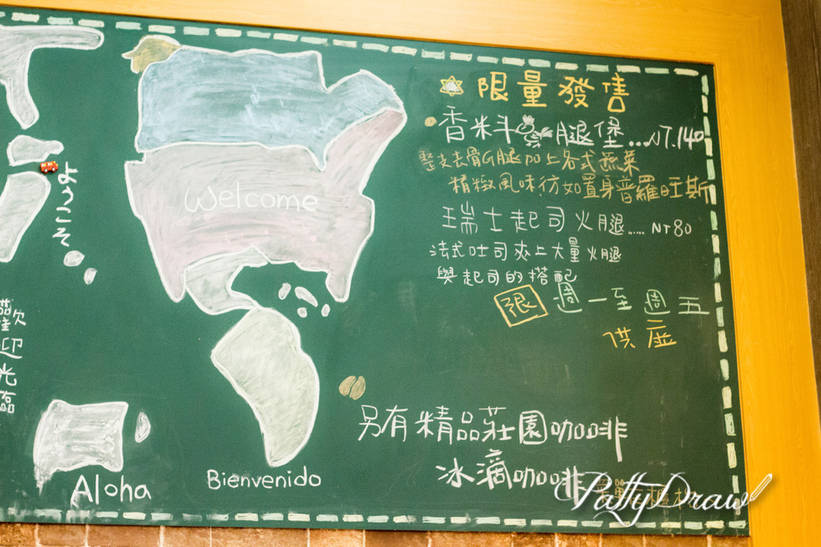 ようこそ
歡迎光臨
Welcome
Aloha
Bienvenido
限量發售
香料雞腿堡...NT.140
整支去骨G腿加上各式蔬菜
精緻風味彷如置身普羅旺斯
瑞士起司火腿..... NT80
法式吐司夾上大量火腿
與起司的搭配
限 週一至週五
供應
另有精品莊園咖啡
冰滴咖啡
PattyDraw